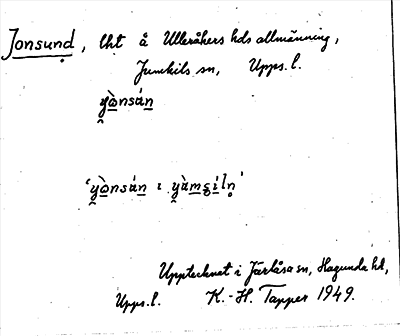 Jonsund, lht å Ulleråkers hds allmänning,
Jumkils sn, Upps. l.
y̭ò̱nsá̱ṉ
'y̭ò̱nsá̱ṉ ɩ y̭à̱m̱ʂi̱ln̥'
Upptecknat i Järlåsa sn, Hagunda hd,
Upps. l. K.-H. Tapper 1949.